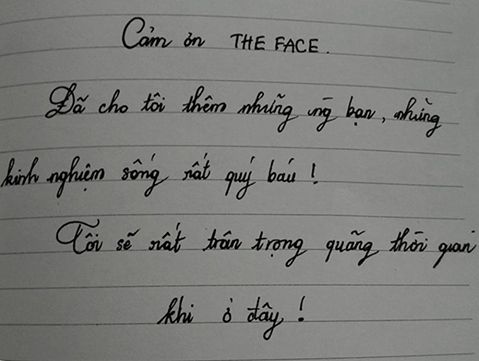 Cảm ơn THE FACE.
Đã cho tôi thêm những ng bạn, những
kinh nghiệm sống rất quý báu !
Tôi sẽ rất trân trọng quãng thời gian
khi ở đây !